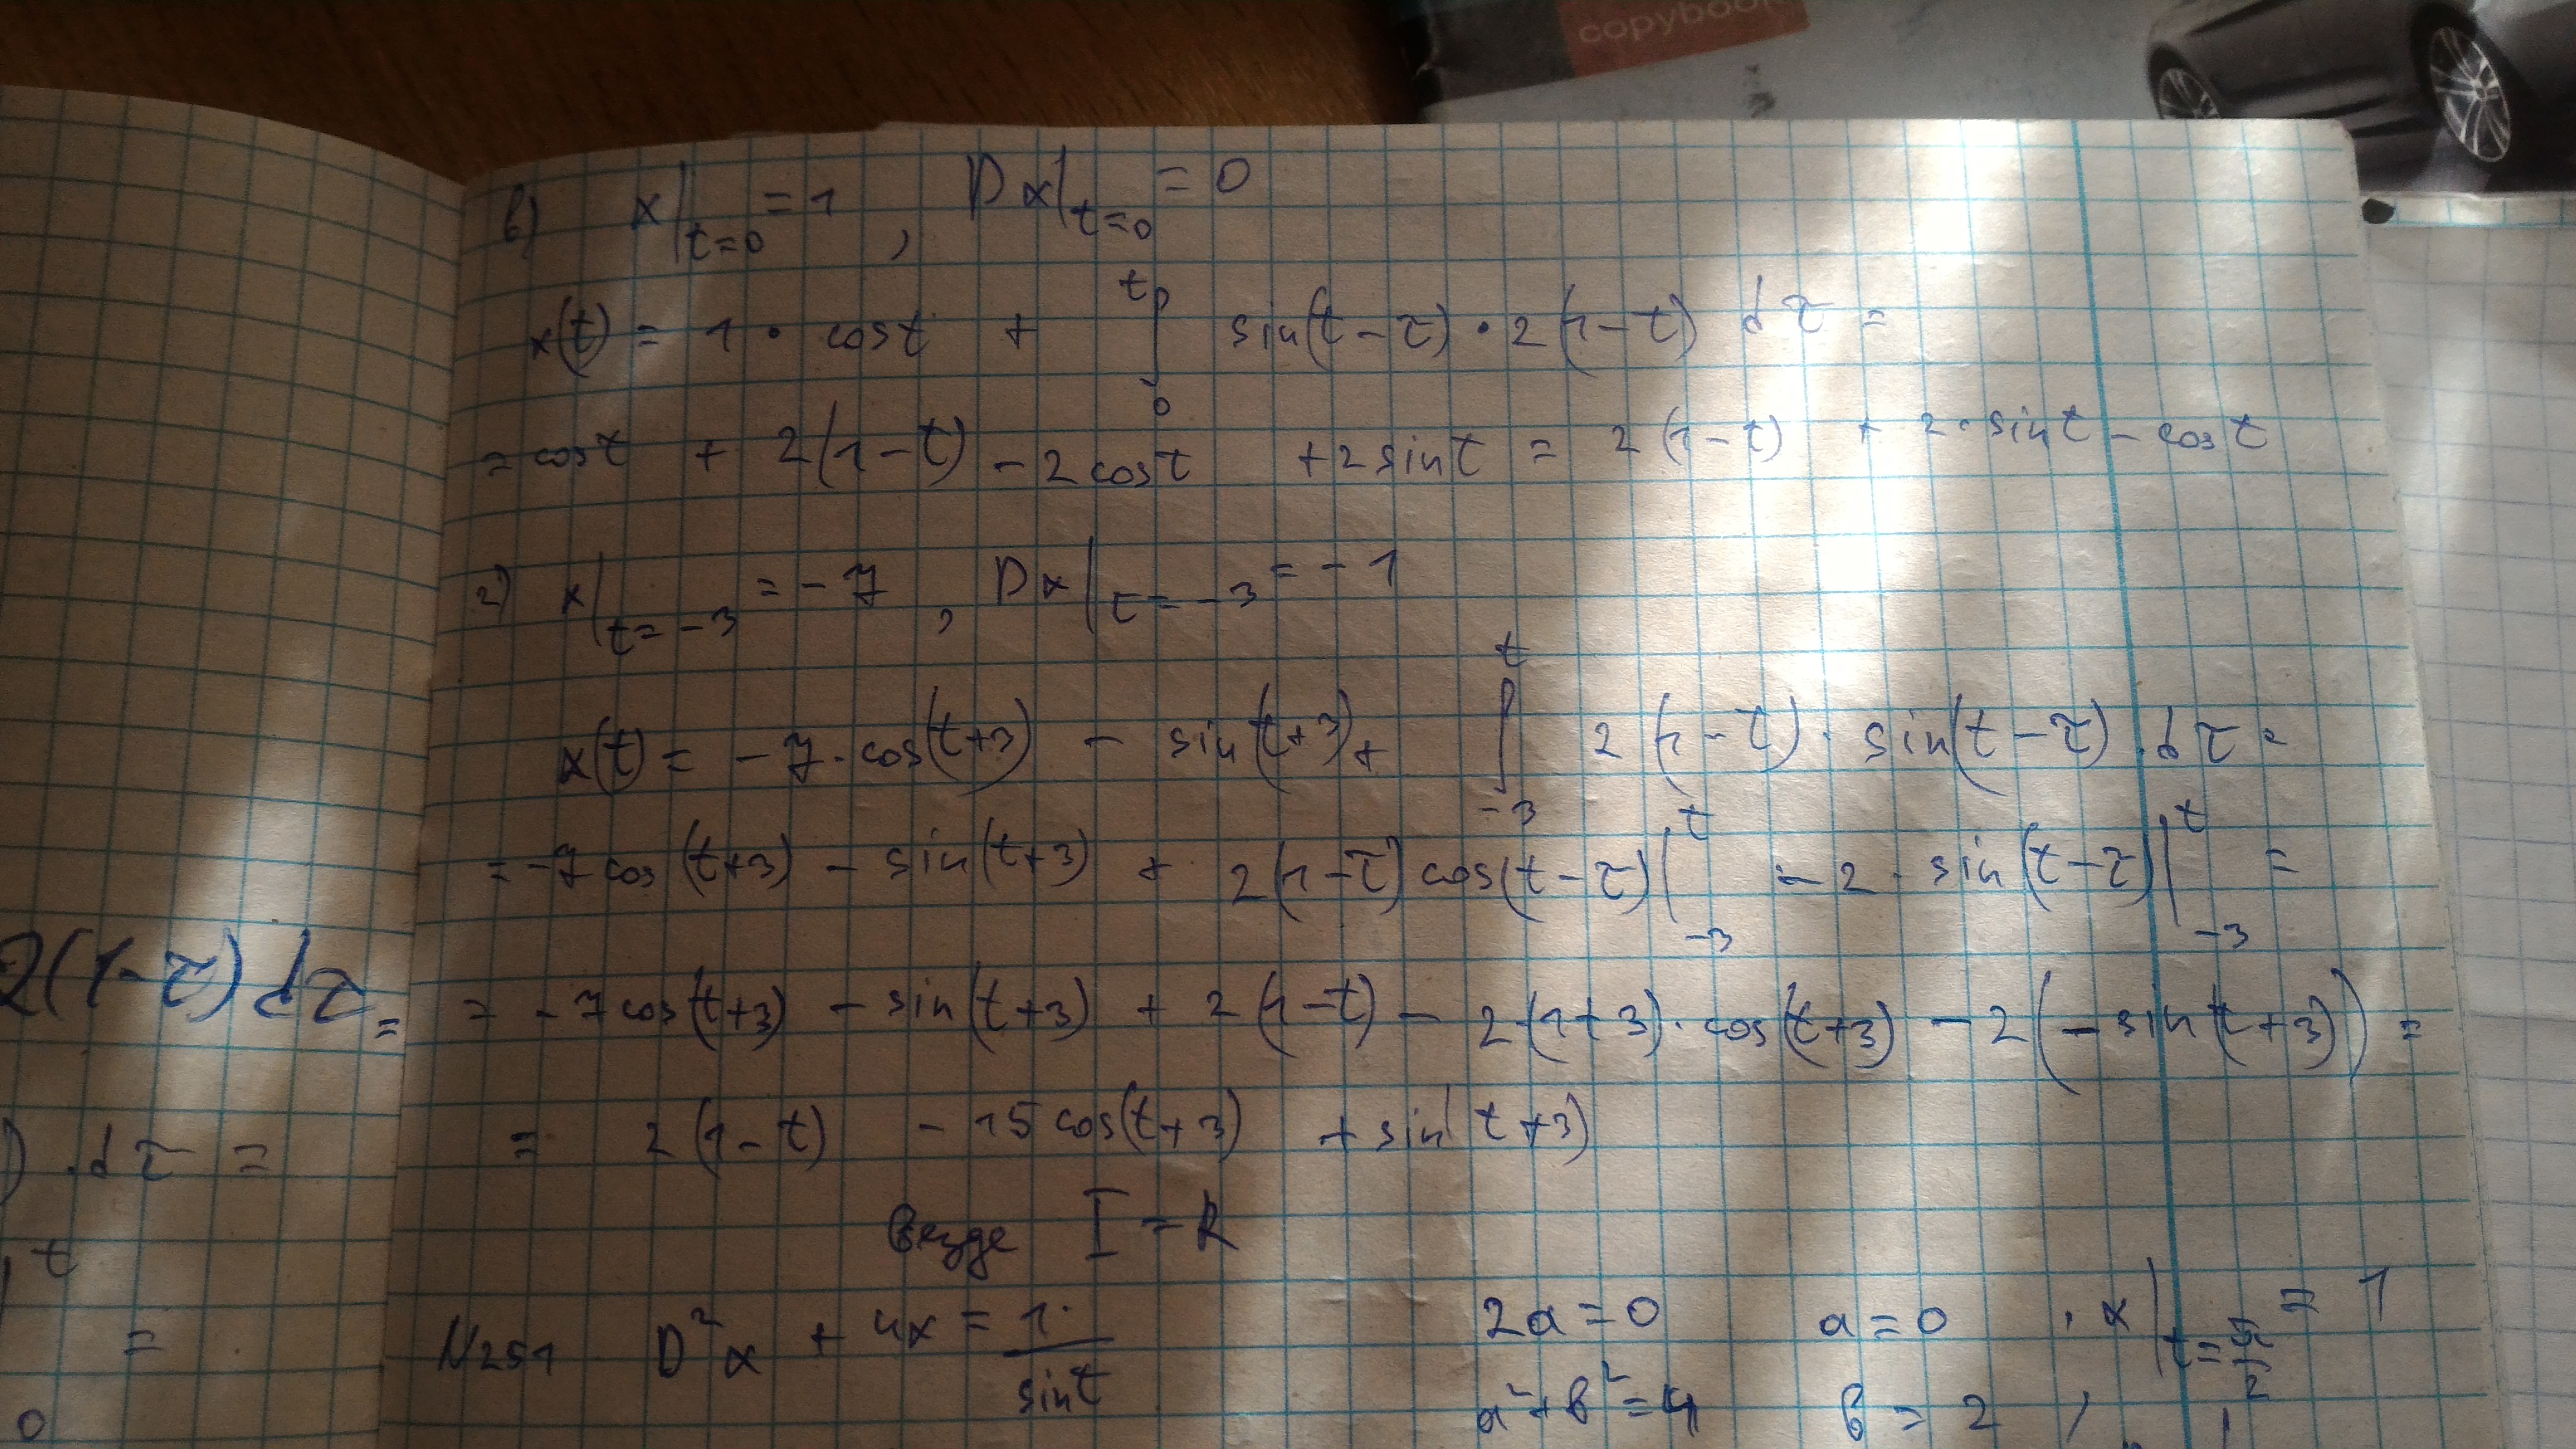 copybook
в) x|t=0 = 1 , Dx|t=0 = 0
x(t) = 1 · cost + ∫₀ᵗ sin(t-τ) · 2(1-τ) dτ =
= cost + 2(1-t) - 2cost + 2sint = 2(1-t) + 2·sint - cost
г) x|t=-3 = -7 , Dx|t=-3 = -1
x(t) = -7·cos(t+3) - sin(t+3) + ∫₋₃ᵗ 2(1-τ)·sin(t-τ)·dτ =
= -7cos(t+3) - sin(t+3) + 2(1-τ)cos(t-τ)|₋₃ᵗ - 2·sin(t-τ)|₋₃ᵗ =
2(1-τ)dτ =
= -7cos(t+3) - sin(t+3) + 2(1-t) - 2(1+3)·cos(t+3) - 2(-sin(t+3)) =
) · dτ =
= 2(1-t) - 15cos(t+3) + sin(t+3)
везде I = R
t
=
0
N251 D²x + 4x = 1/sint 2a = 0 a = 0 , x|t=π/2 = 1
a² + b² = 4 b = 2 ,